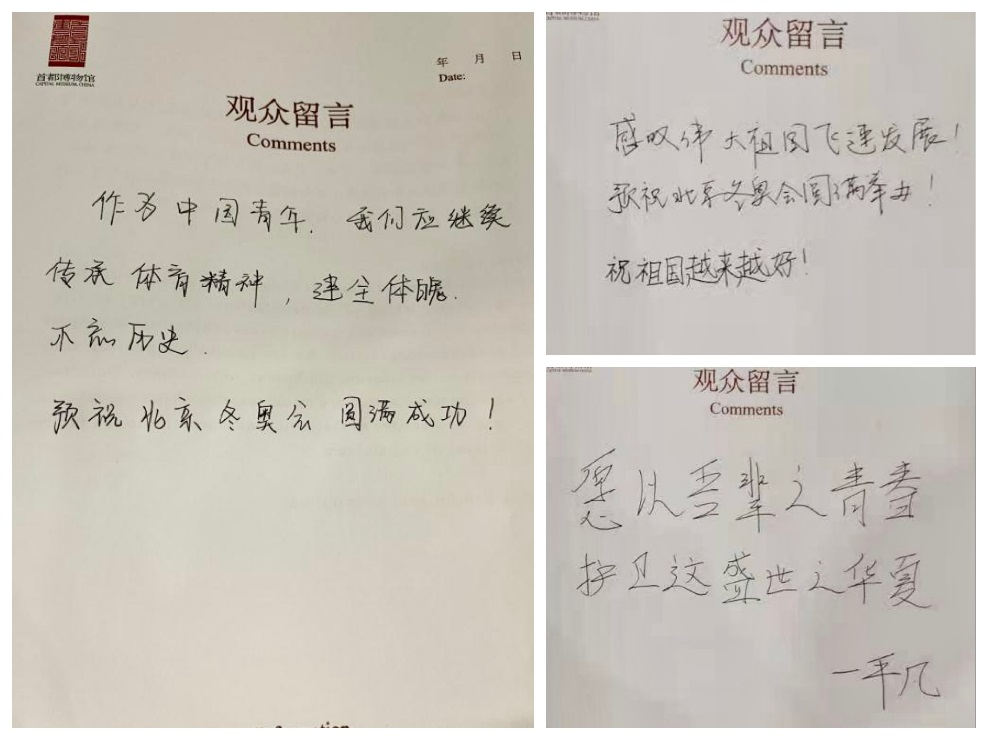 首都博物馆
CAPITAL MUSEUM, CHINA
年 月 日
Date:
观众留言
Comments
作为中国青年,我们应继续
传承体育精神,建全体魄.
不忘历史.
预祝北京冬奥会圆满成功!
观众留言
Comments
感叹伟大祖国飞速发展!
预祝北京冬奥会圆满举办!
祝祖国越来越好!
观众留言
Comments
愿以吾辈之青春
护卫这盛世之华夏
一平凡